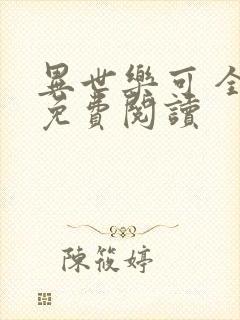 異世樂可 全
免費閱讀
陳筱婷